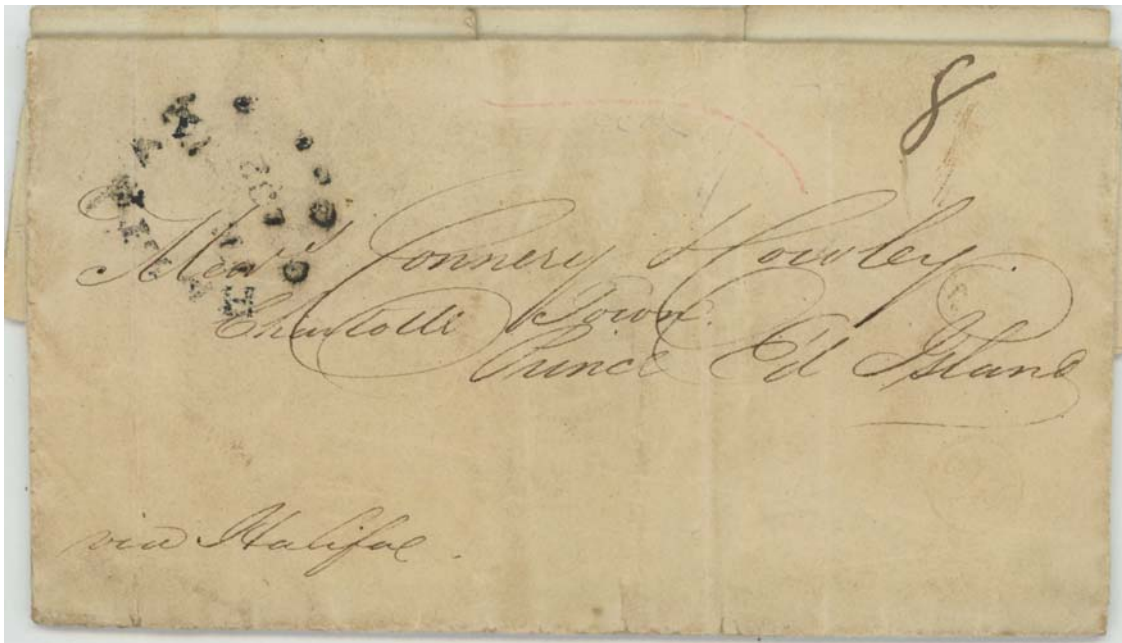 8
Connery Howley
Charlotte Town.
Prince Ed Island
via Halifax.